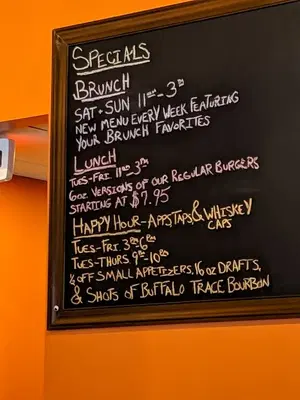 SPECIALS
BRUNCH
SAT + SUN 11:00 - 3:00
NEW MENU EVERY WEEK FEATURING
YOUR BRUNCH FAVORITES
LUNCH
TUES-FRI 11:00-3:00
6oz VERSIONS OF OUR REGULAR BURGERS
STARTING AT $7.95
HAPPY HOUR-APPS, TAPS, & WHISKEY
CAPS
TUES-FRI. 3:00-6:00
TUES-THURS 9:00-10:00
½ OFF SMALL APPETIZERS, 16 OZ DRAFTS,
& SHOTS OF BUFFALO TRACE BOURBON